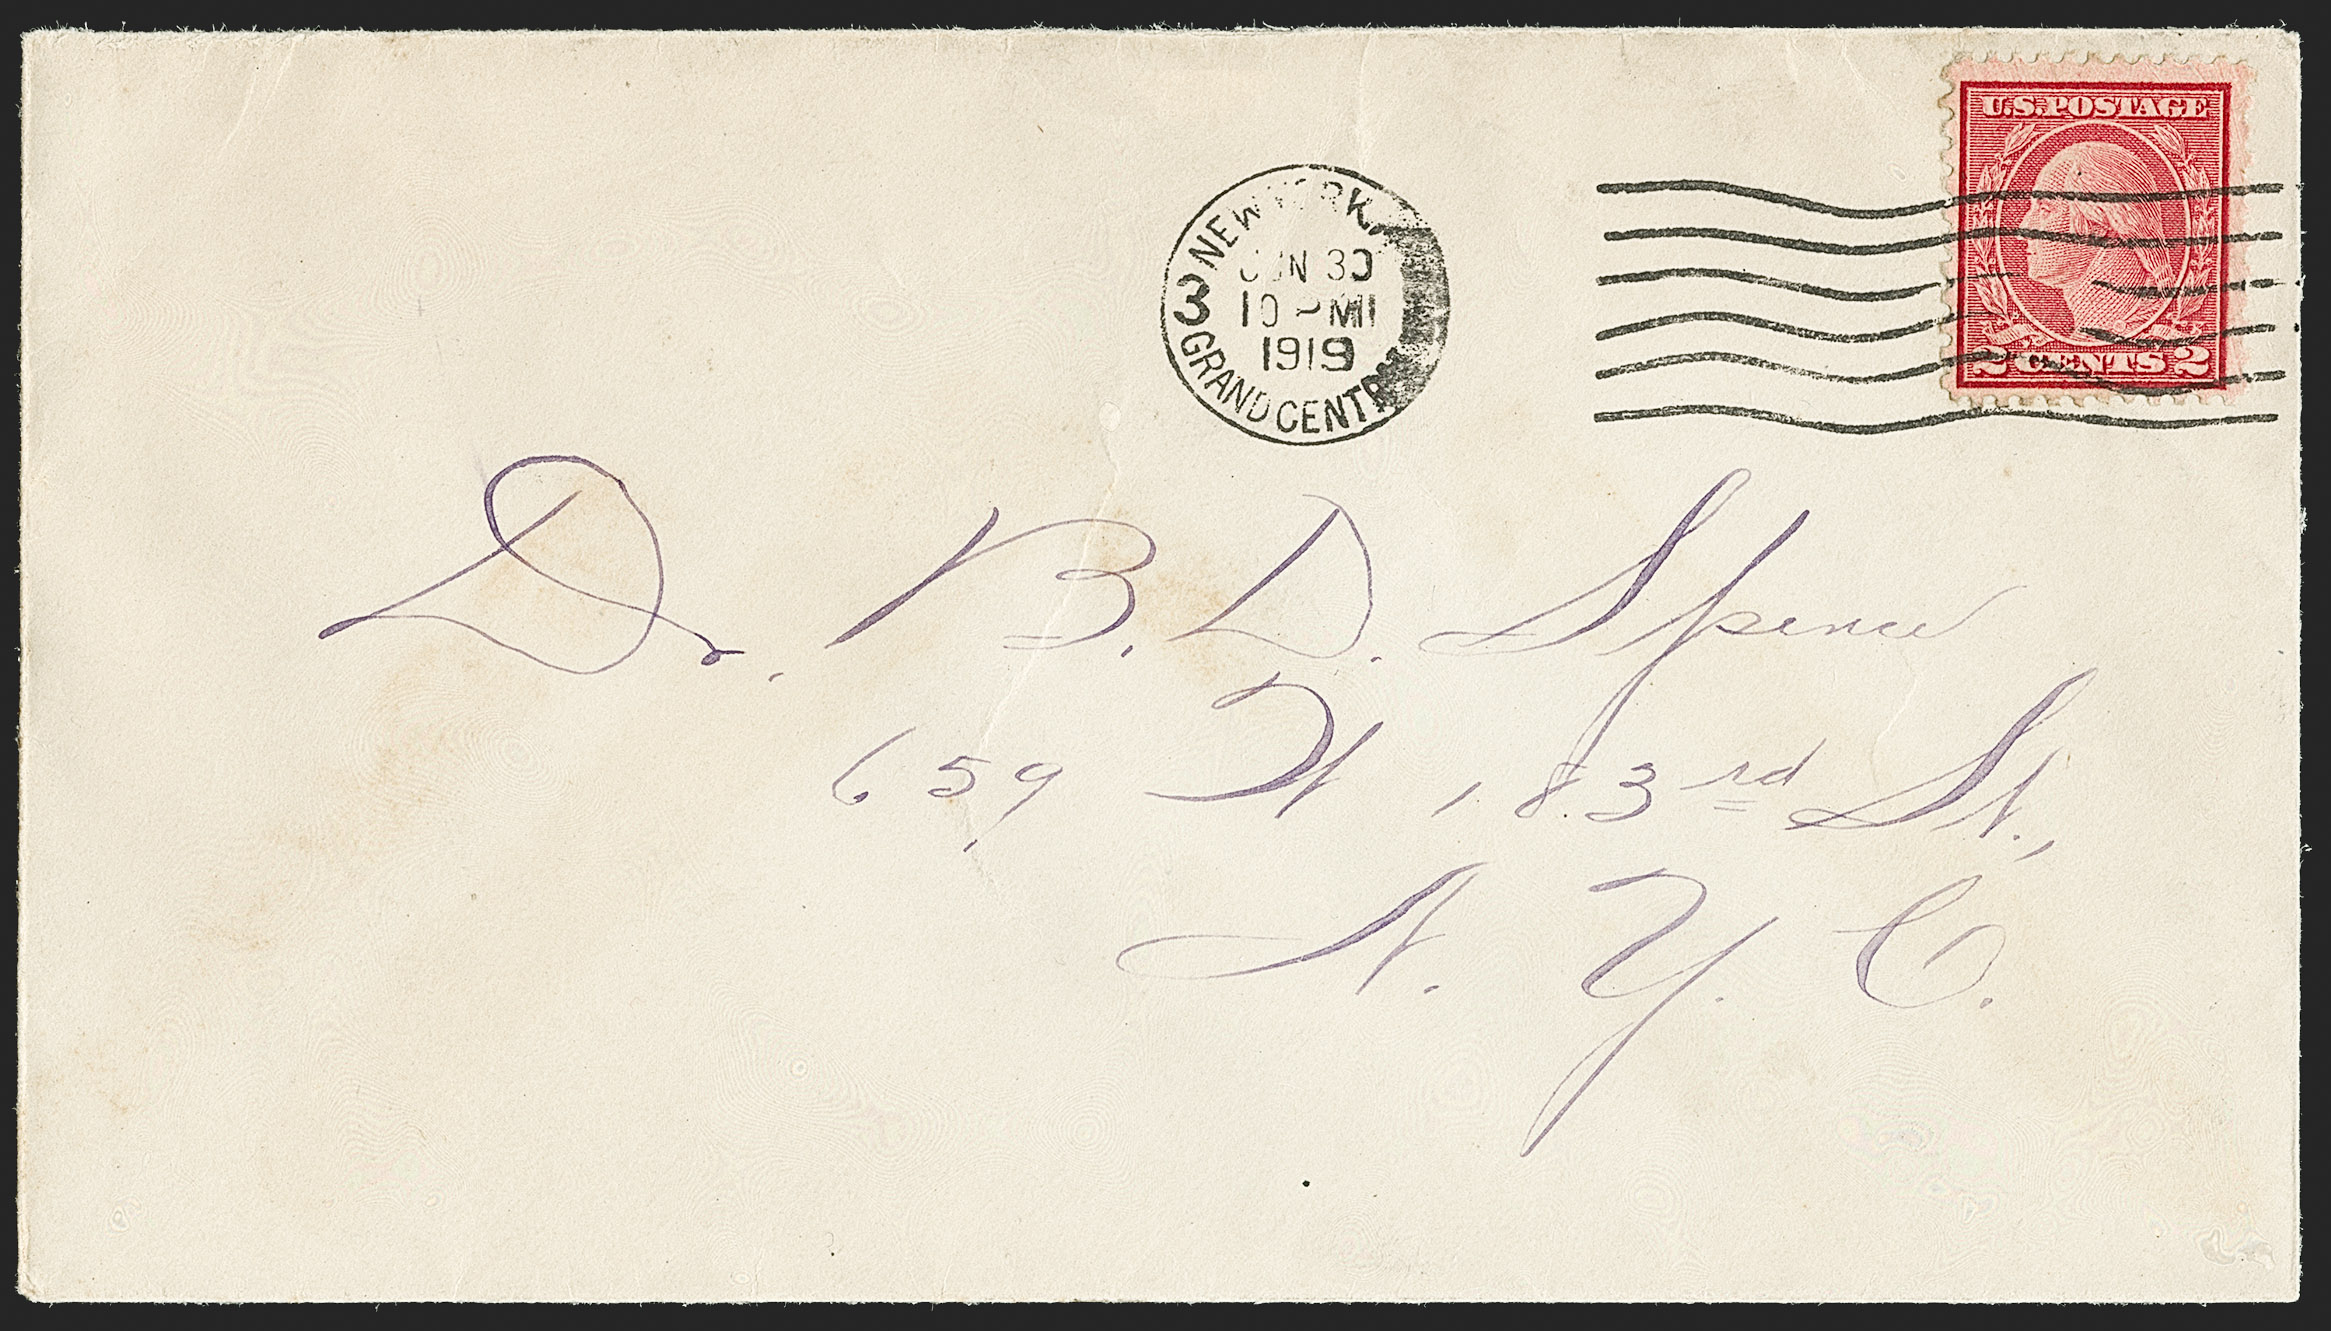 U.S. POSTAGE
2 CENTS 2
NEW YORK, N
JUN 30
10 PM
1919
3
GRAND CENTRAL
Dr. B. D. Spence
659 W 183rd St.,
N. Y. C.